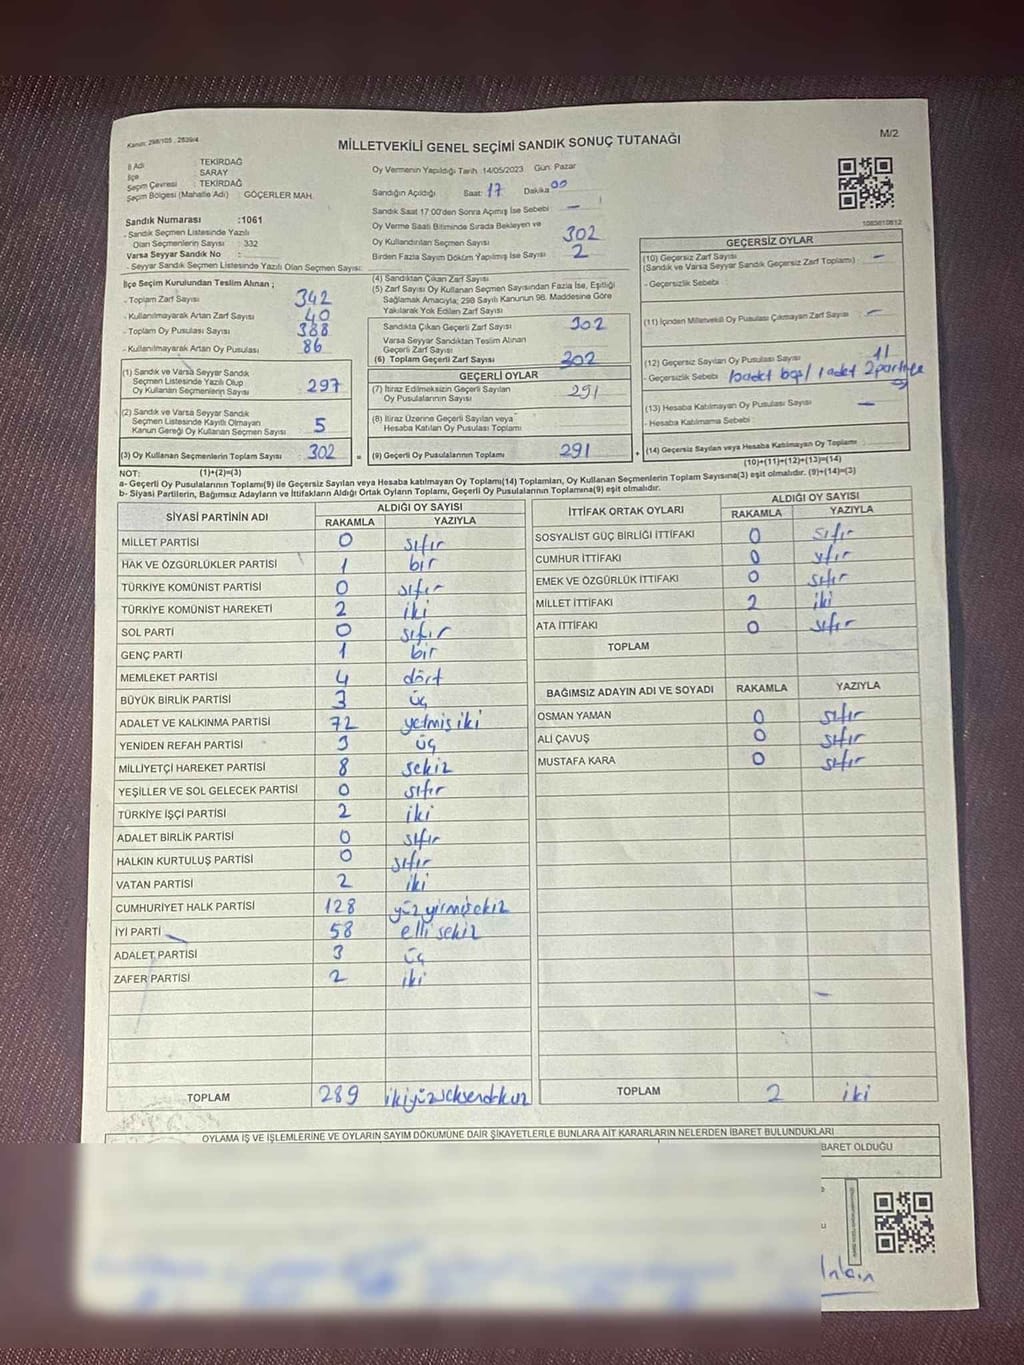 Kanun: 298/105 , 2839/4
M/2
MİLLETVEKİLİ GENEL SEÇİMİ SANDIK SONUÇ TUTANAĞI
İl Adı : TEKİRDAĞ
İlçe : SARAY
Seçim Çevresi : TEKİRDAĞ
Seçim Bölgesi (Mahalle Adı) : GÖÇERLER MAH.
Sandık Numarası :1061
- Sandık Seçmen Listesinde Yazılı
Olan Seçmenlerin Sayısı : 332
Varsa Seyyar Sandık No :
- Seyyar Sandık Seçmen Listesinde Yazılı Olan Seçmen Sayısı:
Oy Vermenin Yapıldığı Tarih :14/05/2023 Gün: Pazar
Sandığın Açıldığı Saat: 17 Dakika 00
Sandık Saat 17:00'den Sonra Açımış İse Sebebi —
Oy Verme Saati Bitiminde Sırada Bekleyen ve
Oy Kullandırılan Seçmen Sayısı 302
Birden Fazla Sayım Döküm Yapılmış İse Sayısı 2
1083610612
İlçe Seçim Kurulundan Teslim Alınan ;
- Toplam Zarf Sayısı 342
- Kullanılmayarak Artan Zarf Sayısı 40
- Toplam Oy Pusulası Sayısı 388
- Kullanılmayarak Artan Oy Pusulası 86
(1) Sandık ve Varsa Seyyar Sandık
Seçmen Listesinde Yazılı Olup
Oy Kullanan Seçmenlerin Sayısı 297
(2) Sandık ve Varsa Seyyar Sandık
Seçmen Listesinde Kayıtlı Olmayan
Kanun Gereği Oy Kullanan Seçmen Sayısı 5
(3) Oy Kullanan Seçmenlerin Toplam Sayısı 302 =
(4) Sandıktan Çıkan Zarf Sayısı
(5) Zarf Sayısı Oy Kullanan Seçmen Sayısından Fazla İse, Eşitliği
Sağlamak Amacıyla; 298 Sayılı Kanunun 98. Maddesine Göre
Yakılarak Yok Edilen Zarf Sayısı
Sandıkta Çıkan Geçerli Zarf Sayısı 302
Varsa Seyyar Sandıktan Teslim Alınan
Geçerli Zarf Sayısı
(6) Toplam Geçerli Zarf Sayısı 302
GEÇERLİ OYLAR
(7) İtiraz Edilmeksizin Geçerli Sayılan
Oy Pusulalarının Sayısı 291
(8) İtiraz Üzerine Geçerli Sayılan veya
Hesaba Katılan Oy Pusulası Toplamı
(9) Geçerli Oy Pusulalarının Toplamı 291 +
GEÇERSİZ OYLAR
(10) Geçersiz Zarf Sayısı
(Sandık ve Varsa Seyyar Sandık Geçersiz Zarf Toplamı) —
- Geçersizlik Sebebi :
(11) İçinden Milletvekili Oy Pusulası Çıkmayan Zarf Sayısı —
(12) Geçersiz Sayılan Oy Pusulası Sayısı 11
- Geçersizlik Sebebi 10 adet boş/ 1 adet 2 partiye
(13) Hesaba Katılmayan Oy Pusulası Sayısı —
- Hesaba Katılmama Sebebi :
(14) Geçersiz Sayılan veya Hesaba Katılmayan Oy Toplamı
(10)+(11)+(12)+(13)=(14)
NOT: (1)+(2)=(3)
a- Geçerli Oy Pusulalarının Toplamı(9) ile Geçersiz Sayılan veya Hesaba katılmayan Oy Toplamı(14) Toplamları, Oy Kullanan Seçmenlerin Toplam Sayısına(3) eşit olmalıdır. (9)+(14)=(3)
b- Siyasi Partilerin, Bağımsız Adayların ve İttifakların Aldığı Ortak Oyların Toplamı, Geçerli Oy Pusulalarının Toplamına(9) eşit olmalıdır.
SİYASİ PARTİNİN ADI ALDIĞI OY SAYISI
RAKAMLA YAZIYLA
MİLLET PARTİSİ 0 sıfır
HAK VE ÖZGÜRLÜKLER PARTİSİ 1 bir
TÜRKİYE KOMÜNİST PARTİSİ 0 sıfır
TÜRKİYE KOMÜNİST HAREKETİ 2 iki
SOL PARTİ 0 sıfır
GENÇ PARTİ 1 bir
MEMLEKET PARTİSİ 4 dört
BÜYÜK BİRLİK PARTİSİ 3 üç
ADALET VE KALKINMA PARTİSİ 72 yetmiş iki
YENİDEN REFAH PARTİSİ 3 üç
MİLLİYETÇİ HAREKET PARTİSİ 8 sekiz
YEŞİLLER VE SOL GELECEK PARTİSİ 0 sıfır
TÜRKİYE İŞÇİ PARTİSİ 2 iki
ADALET BİRLİK PARTİSİ 0 sıfır
HALKIN KURTULUŞ PARTİSİ 0 sıfır
VATAN PARTİSİ 2 iki
CUMHURİYET HALK PARTİSİ 128 yüz yirmi sekiz
İYİ PARTİ 58 elli sekiz
ADALET PARTİSİ 3 üç
ZAFER PARTİSİ 2 iki
TOPLAM 289 ikiyüzseksendokuz
İTTİFAK ORTAK OYLARI ALDIĞI OY SAYISI
RAKAMLA YAZIYLA
SOSYALİST GÜÇ BİRLİĞİ İTTİFAKI 0 sıfır
CUMHUR İTTİFAKI 0 sıfır
EMEK VE ÖZGÜRLÜK İTTİFAKI 0 sıfır
MİLLET İTTİFAKI 2 iki
ATA İTTİFAKI 0 sıfır
TOPLAM
BAĞIMSIZ ADAYIN ADI VE SOYADI RAKAMLA YAZIYLA
OSMAN YAMAN 0 sıfır
ALİ ÇAVUŞ 0 sıfır
MUSTAFA KARA 0 sıfır
TOPLAM 2 iki
OYLAMA İŞ VE İŞLEMLERİNE VE OYLARIN SAYIM DÖKÜMÜNE DAİR ŞİKAYETLERLE BUNLARA AİT KARARLARIN NELERDEN İBARET BULUNDUKLARI
BARET OLDUĞU